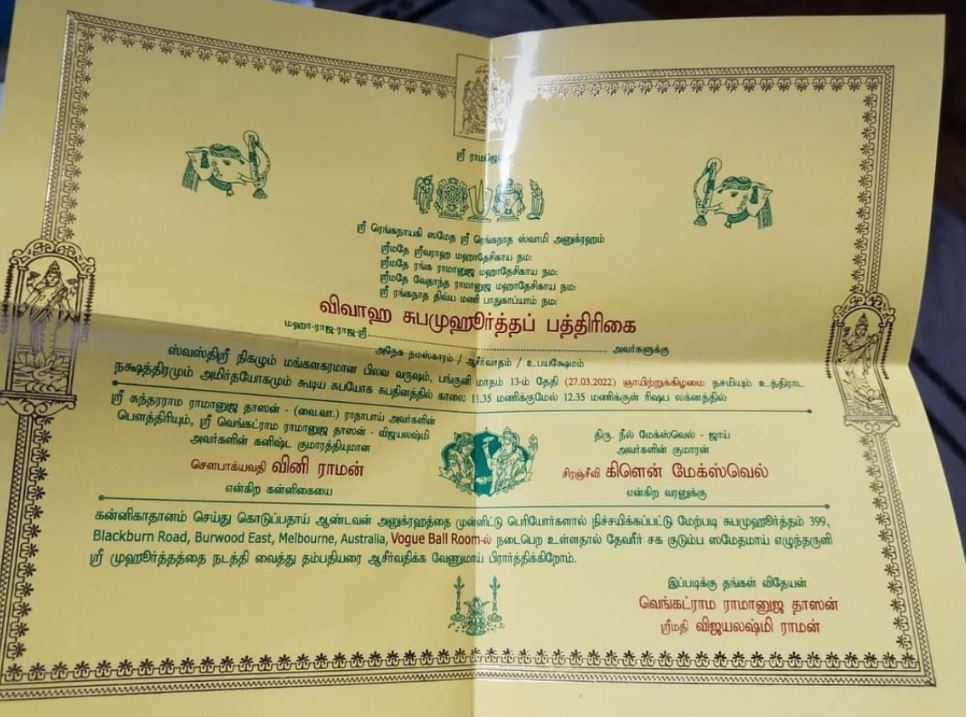 ஸ்ரீ ராமஜெயம்
ஸ்ரீ ரெங்கநாயகி ஸமேத ஸ்ரீ ரெங்கநாத ஸ்வாமி அனுக்ரஹம்
ஸ்ரீமதே ஸ்ரீவராஹ மஹாதேசிகாய நம:
ஸ்ரீமதே ரங்க ராமானுஜ மஹாதேசிகாய நம:
ஸ்ரீமதே வேதாந்த ராமானுஜ மஹாதேசிகாய நம:
ஸ்ரீ ரங்கநாத திவ்ய மணி பாதுகாப்யாம் நம:
விவாஹ சுபமுஹூர்த்தப் பத்திரிகை
மஹா-ராஜ-ராஜ-ஸ்ரீ.......................................................... அவர்களுக்கு
அநேக நமஸ்காரம் / ஆசீர்வாதம் / உபயக்ஷேமம்
ஸ்வஸ்திஸ்ரீ நிகழும் மங்களகரமான பிலவ வருஷம், பங்குனி மாதம் 13-ம் தேதி (27.03.2022) ஞாயிற்றுக்கிழமை தசமியும் உத்திராட
நக்ஷத்திரமும் அமிர்தயோகமும் கூடிய சுபயோக சுபதினத்தில் காலை 11.35 மணிக்குமேல் 12.35 மணிக்குள் ரிஷப லக்னத்தில்
ஸ்ரீ சுந்தரராம ராமானுஜ தாஸன் - (வை.வா.) ராதாபாய் அவர்களின்
பௌத்திரியும், ஸ்ரீ வெங்கட்ராம ராமானுஜ தாஸன் - விஜயலஷ்மி
அவர்களின் கனிஷ்ட குமாரத்தியுமான
சௌபாக்யவதி வினி ராமன்
என்கிற கன்னிகையை
திரு. நீல் மேக்ஸ்வெல் - ஜாய்
அவர்களின் குமாரன்
சிரஞ்சீவி கிளென் மேக்ஸ்வெல்
என்கிற வரனுக்கு
கன்னிகாதானம் செய்து கொடுப்பதாய் ஆண்டவன் அனுக்ரஹத்தை முன்னிட்டு பெரியோர்களால் நிச்சயிக்கப்பட்டு மேற்படி சுபமுஹூர்த்தம் 399,
Blackburn Road, Burwood East, Melbourne, Australia, Vogue Ball Room-ல் நடைபெற உள்ளதால் தேவரீர் சக குடும்ப ஸமேதமாய் எழுந்தருளி
ஸ்ரீ முஹூர்த்தத்தை நடத்தி வைத்து தம்பதியரை ஆசீர்வதிக்க வேணுமாய் பிரார்த்திக்கிறோம்.
இப்படிக்கு தங்கள் விதேயன்
வெங்கட்ராம ராமானுஜ தாஸன்
ஸ்ரீமதி விஜயலஷ்மி ராமன்